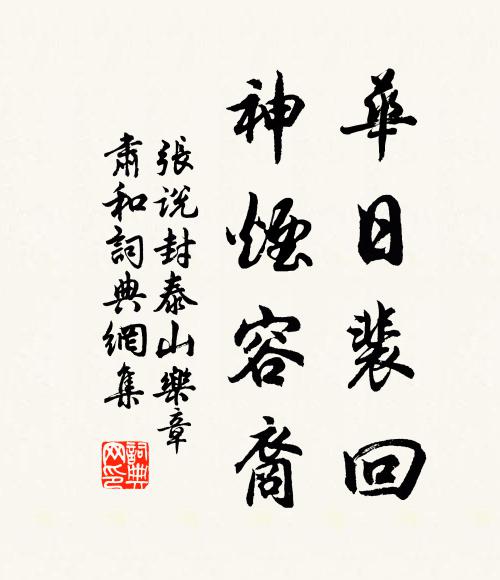 華日裴回
神煙容裔
張説封泰山樂章
肅和詞典網集
詞典
网印